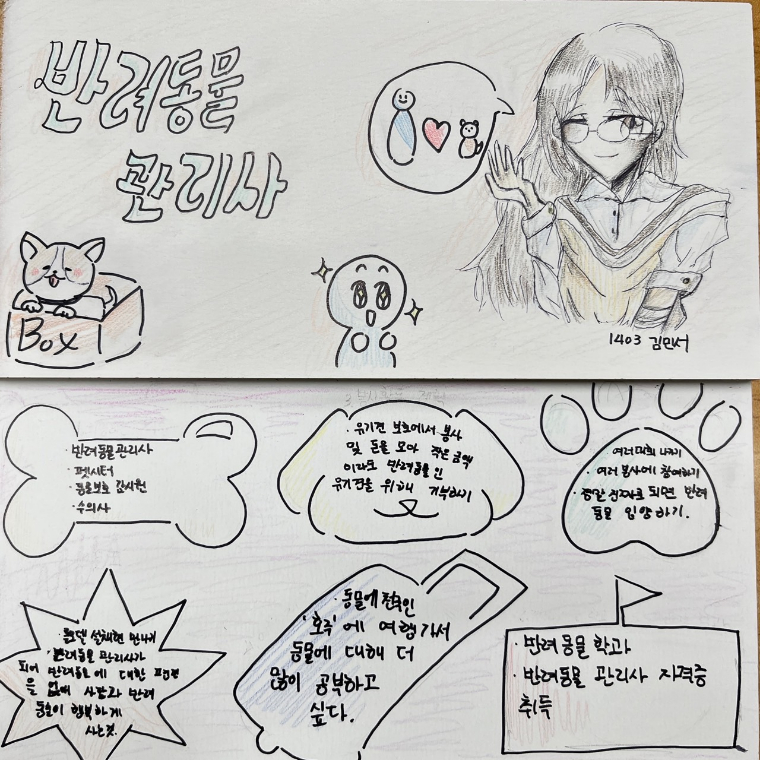 반려동물
관리사
Box
1403 김민서
· 반려동물관리사
· 펫시터
· 동물보호 감시원
· 수의사
· 유기견 보호에서 봉사
및 돈을 모아 작은 금액
이라도 반려동물인
유기견을 위해 기부하기
여러 대회 나가기
· 여러 봉사에 참여하기
· 정말 된다면 반려
동물 입양하기.
· 롤모델 설채현 만나기
· 반려동물 관리사가
되어 반려동물에 대한
을 없애 사람과 반려
동물이 행복하게
사는것.
· 동물에 천국인
'호주'에 여행가서
동물에 대해 더
많이 공부하고
싶다.
· 반려동물학과
· 반려동물 관리사 자격증
취득